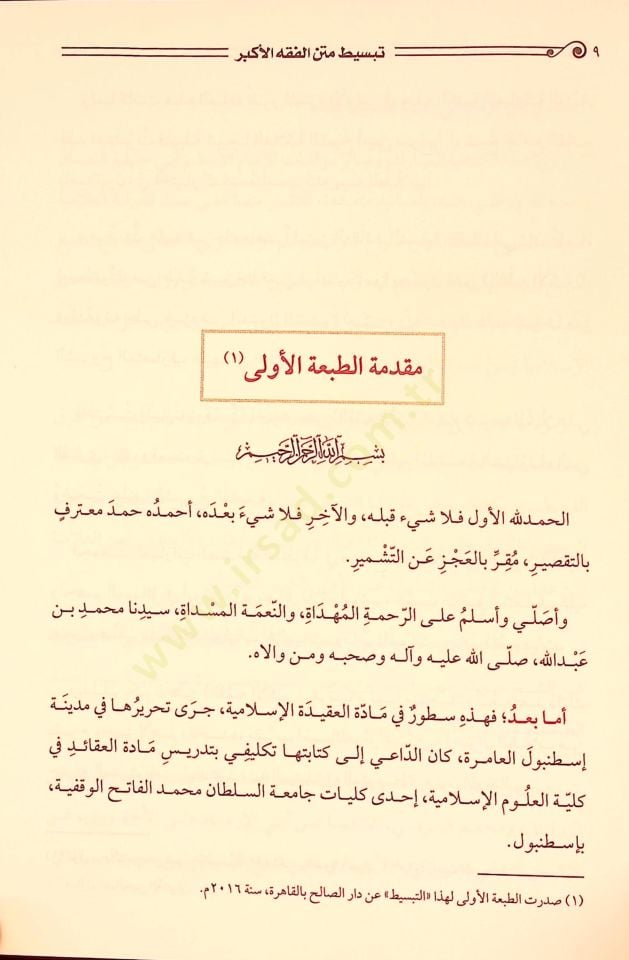 ٩ تبسيط متن الفقه الأكبر
مقدمة الطبعة الأولى (١)
بسم الله الرحمن الرحيم
الحمدلله الأول فلا شيء قبله، والآخِرِ فلا شيءَ بَعْدَه، أحمدُه حمدَ معترفٍ
بالتقصيرِ، مُقِرٍّ بالعَجْزِ عَنِ التّشْميرِ.
وأصَلّي وأسلمُ على الرّحمةِ المُهْدَاةِ، والنّعمَة المسْداةِ، سيدِنا محمدِ بـن
عَبْدالله، صلّى الله عليه وآله وصحبه ومن والاه.
أما بعدُ؛ فهذهِ سطورٌ في مَادّة العقيدَة الإسلامية، جرَى تحريرُها في مدينَة
إسطنبولَ العامرة، كان الدّاعي إلى كتابتها تكليفِي بتدريسِ مَادة العقائدِ في
كليّة العلُوم الإسلامية، إحدى كليات جامعة السلطان محمد الفاتح الوقفية،
بإسطنبول.
(١) صدرت الطبعة الأولى لهذا «التبسيط» عن دار الصالح بالقاهرة، سنة ٢٠١٦م.
www.irsad.com.tr